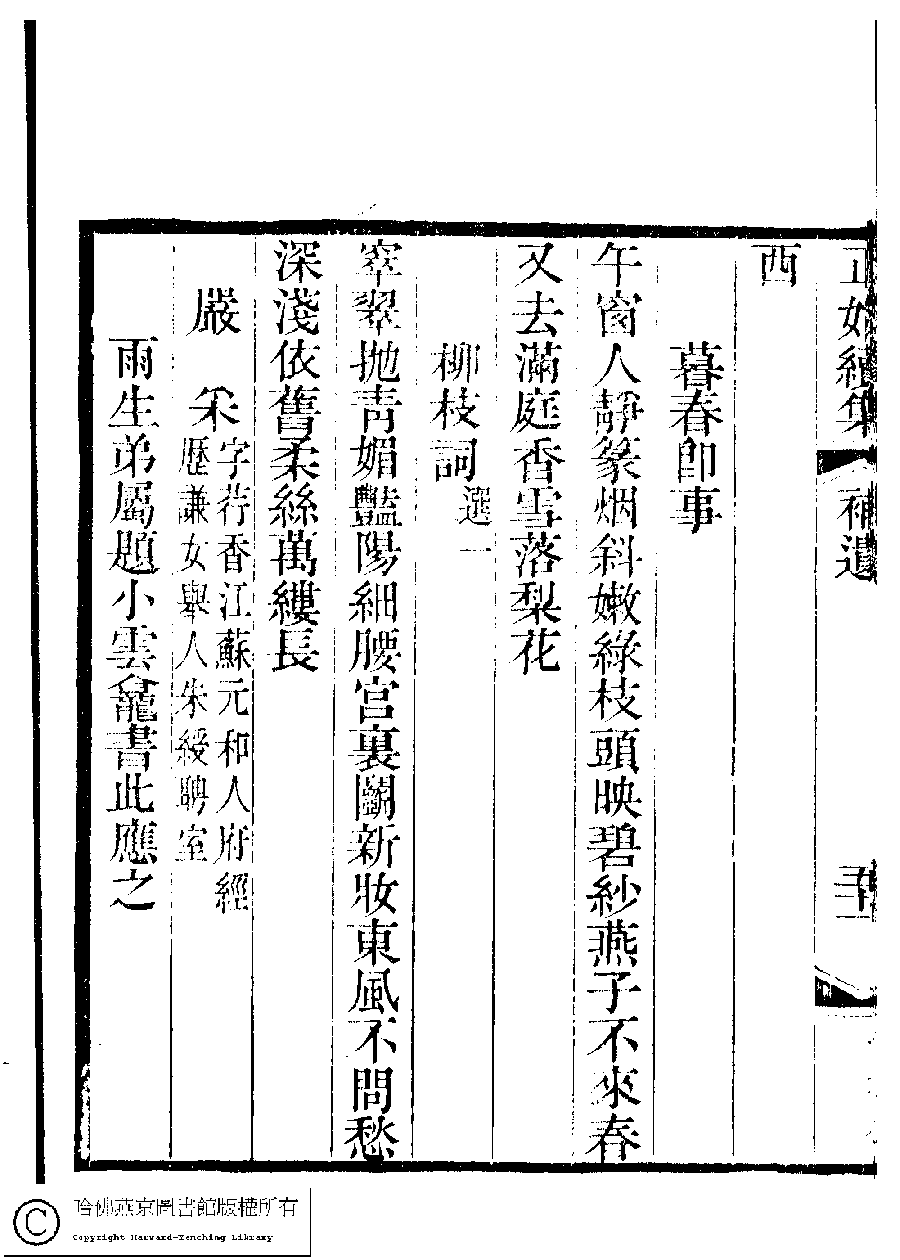 正始續集 補遺
西
暮春卽事
午窗人靜篆烟斜嫩綠枝頭映碧紗燕子不來春
又去滿庭香雪落梨花
柳枝詞選一
窣翠拋靑媚豔陽細腰宮裏鬭新妝東風不問愁
深淺依舊柔絲萬縷長
嚴 采 字荇香江蘇元和人府經
歷謙女舉人朱綬聘室
雨生弟屬題小雲龕書此應之
哈佛燕京圖書館版權所有
Copyright Harvard-Yenching Library